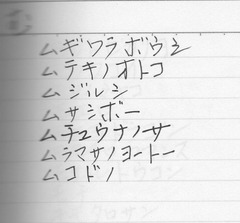 ムギワラボウシ
ムテキノオトコ
ムジルシ
ムサシボー
ムチュウナノサ
ムラマサノヨートー
ムコドノ